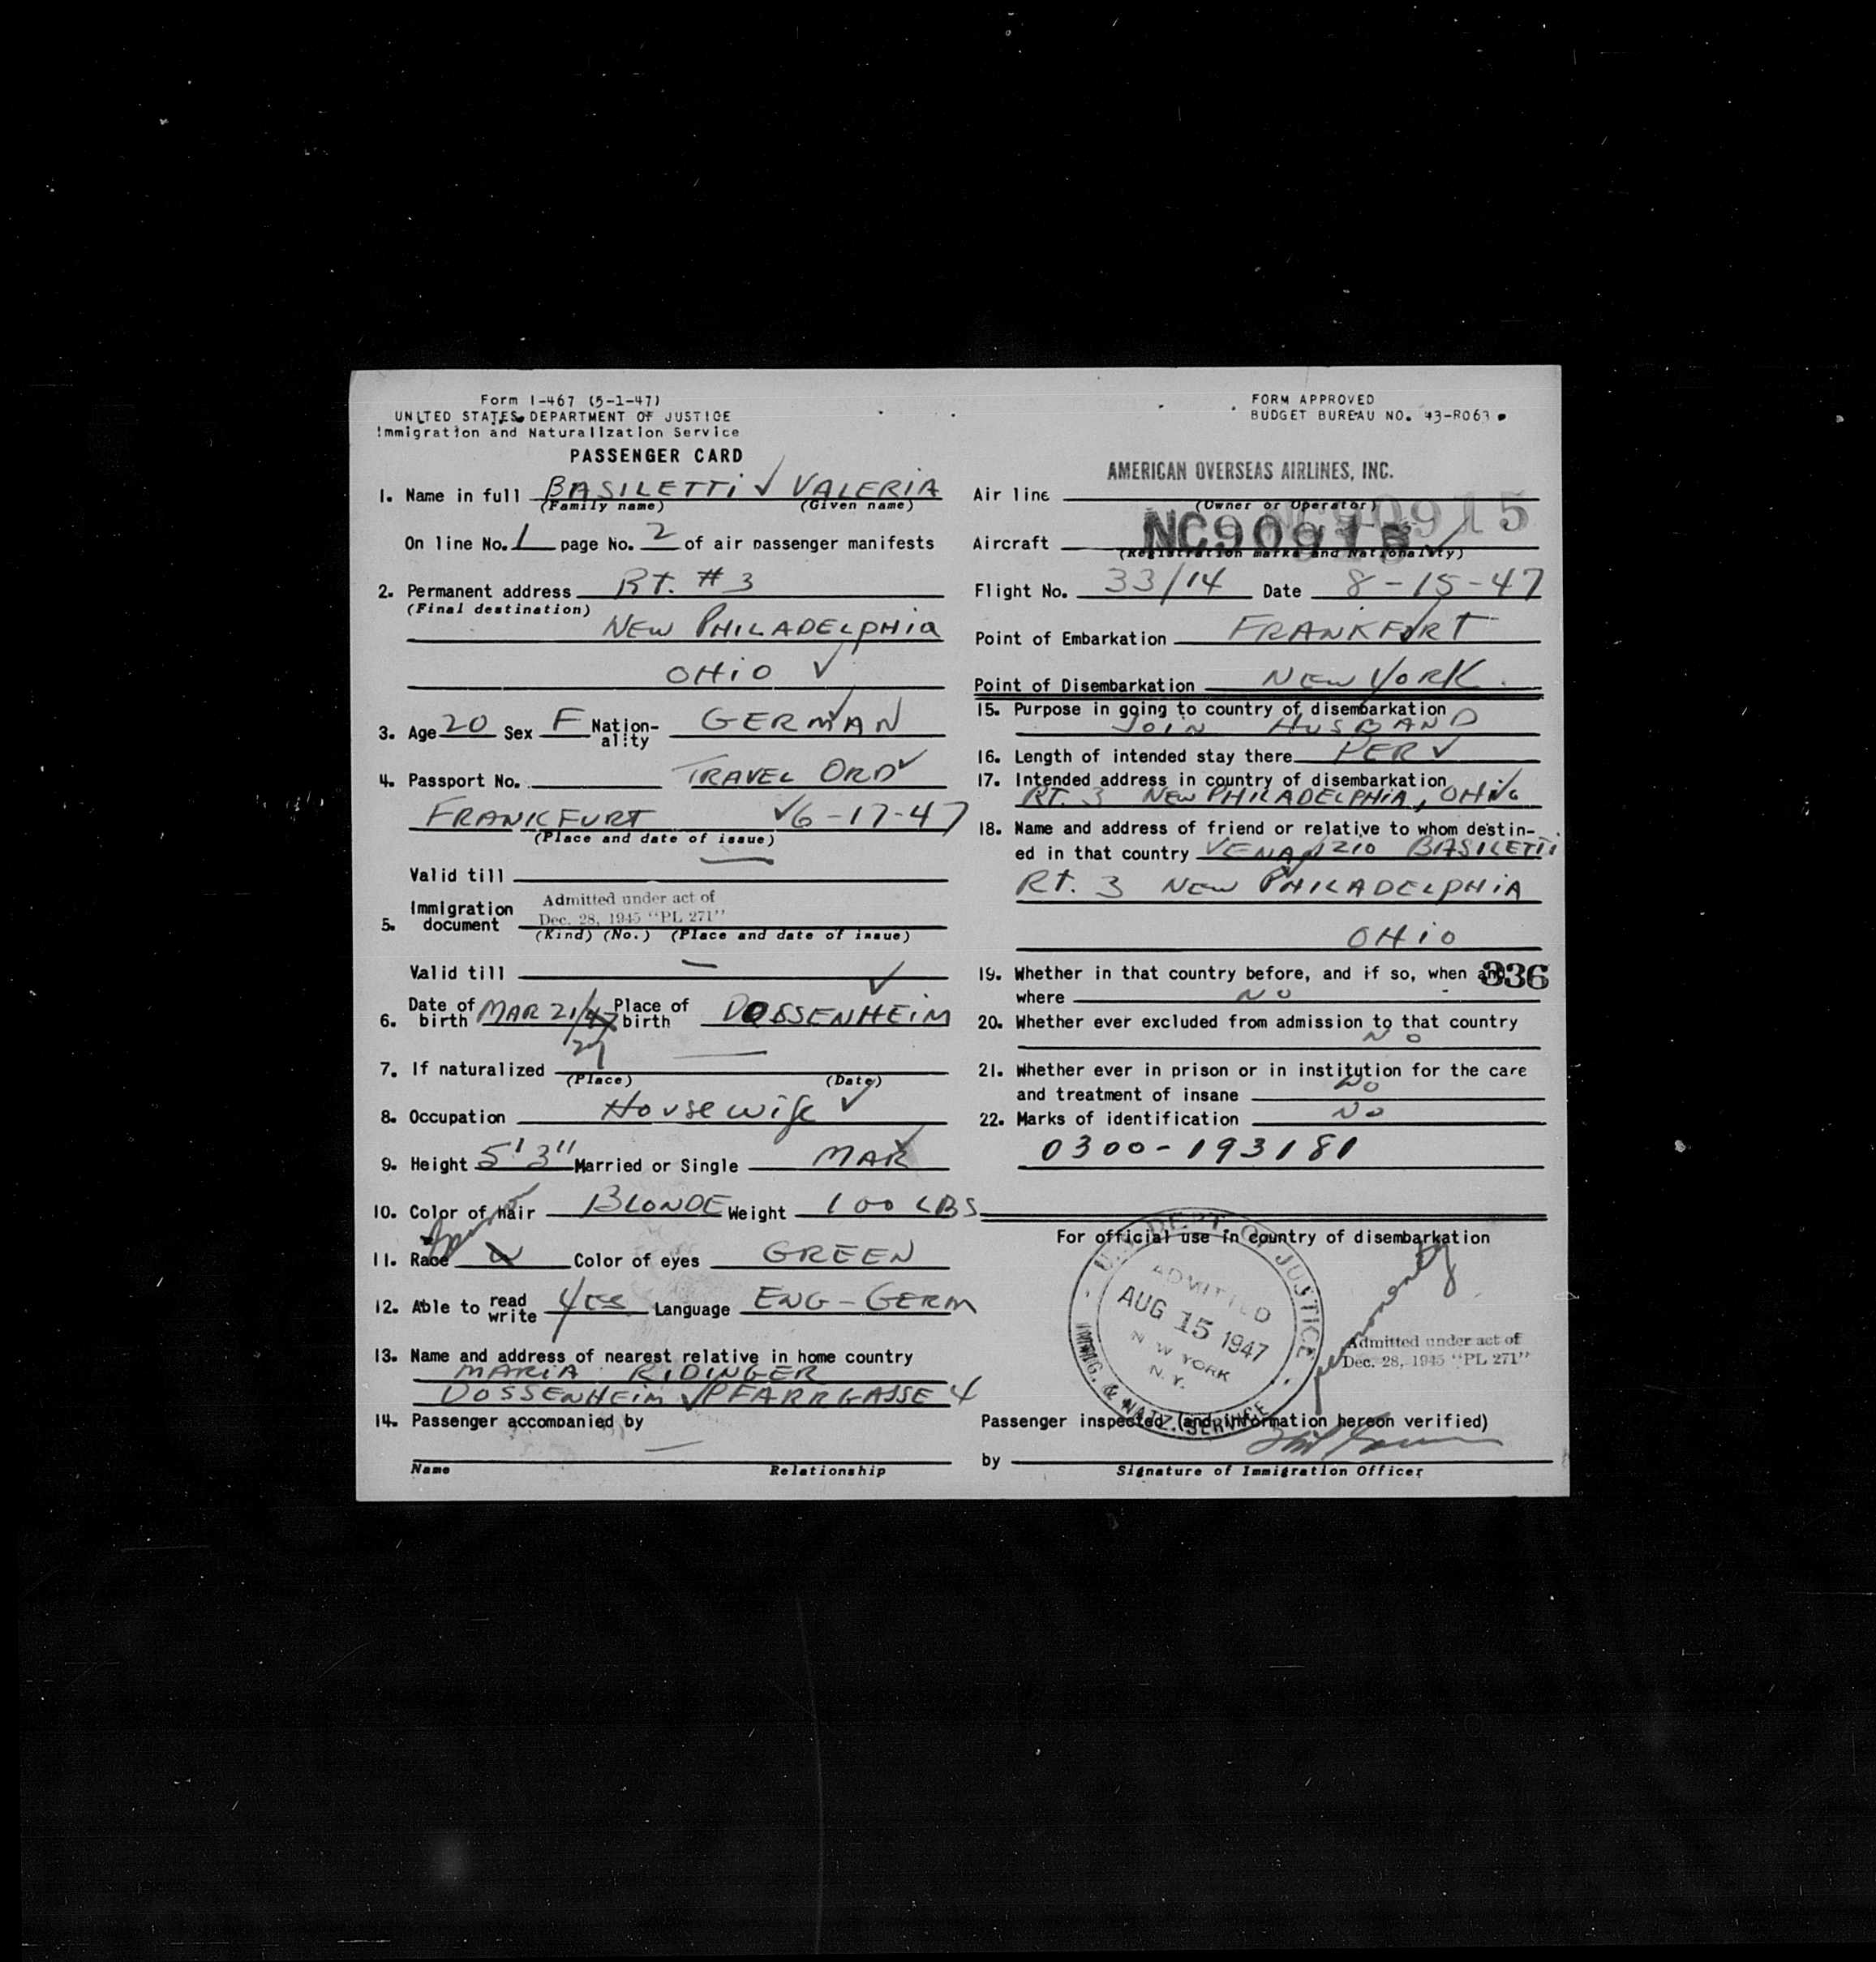 Form I-467 (5-1-47)
UNITED STATES DEPARTMENT OF JUSTICE
Immigration and Naturalization Service
PASSENGER CARD
1. Name in full BASILETTI VALERIA
(Family name) (Given name)
On line No. 1 page No. 2 of air passenger manifests
2. Permanent address RT. #3
(Final destination)
NEW PHILADELPHIA
OHIO
3. Age 20 Sex F Nation-ality GERMAN
4. Passport No. TRAVEL ORD
FRANKFURT 6-17-47
(Place and date of issue)
Valid till —
5. Immigration document Admitted under act of
Dec. 28, 1945 "PL 271"
(Kind) (No.) (Place and date of issue)
Valid till —
6. Date of birth MAR 21/47 Place of birth DOSSENHEIM
27
7. If naturalized —
(Place) (Date)
8. Occupation Housewife
9. Height 5'3" Married or Single MAR
10. Color of hair BLONDE Weight 100 LBS
11. Race W Color of eyes GREEN
12. Able to read write YES Language ENG-GERM
13. Name and address of nearest relative in home country
MARIA RIDINGER
DOSSENHEIM PFARRGASSE 4
14. Passenger accompanied by
—
Name Relationship
FORM APPROVED
BUDGET BUREAU NO. 43-R063.
AMERICAN OVERSEAS AIRLINES, INC.
Air line
(Owner or Operator)
Aircraft NC90915 NC90915
(Registration marks and Nationality)
Flight No. 33/14 Date 8-15-47
Point of Embarkation FRANKFURT
Point of Disembarkation NEW YORK
15. Purpose in going to country of disembarkation
JOIN HUSBAND
16. Length of intended stay there PER
17. Intended address in country of disembarkation
RT. 3 NEW PHILADELPHIA, OHIO
18. Name and address of friend or relative to whom destin-
ed in that country VENANZIO BASILETTI
RT. 3 NEW PHILADELPHIA
OHIO
19. Whether in that country before, and if so, when and 336
where NO
20. Whether ever excluded from admission to that country
NO
21. Whether ever in prison or in institution for the care
and treatment of insane NO
22. Marks of identification NO
0300-193181
For official use in country of disembarkation
U.S. DEPT. OF JUSTICE
ADMITTED
AUG 15 1947
NEW YORK
N.Y.
IMMIG. & NATZ. SERVICE
permanently
Admitted under act of
Dec. 28, 1945 "PL 271"
Passenger inspected (and information hereon verified)
by
Signature of Immigration Officer